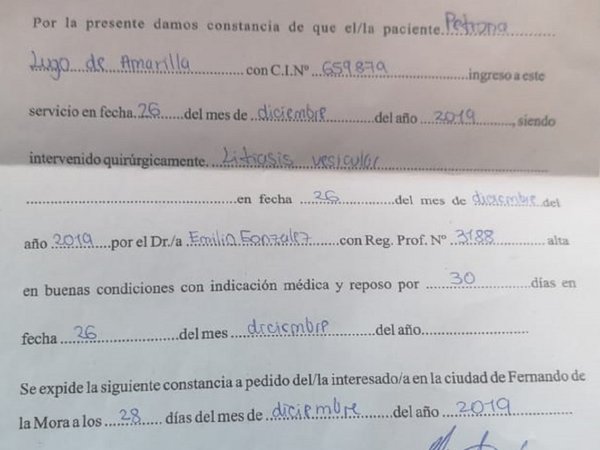 Por la presente damos constancia de que el/la paciente. Petrona
Lugo de Amarilla con C.I.Nº 659879 ingreso a este
servicio en fecha. 26 del mes de diciembre del año 2019, siendo
intervenido quirúrgicamente. Litiasis vesicular
en fecha 26 del mes de diciembre del
año 2019 por el Dr./a Emilio Gonzalez con Reg. Prof. Nº 3188 alta
en buenas condiciones con indicación médica y reposo por 30 días en
fecha 26 del mes diciembre del año
Se expide la siguiente constancia a pedido del/la interesado/a en la ciudad de Fernando de
la Mora a los 28 días del mes de diciembre del año 2019